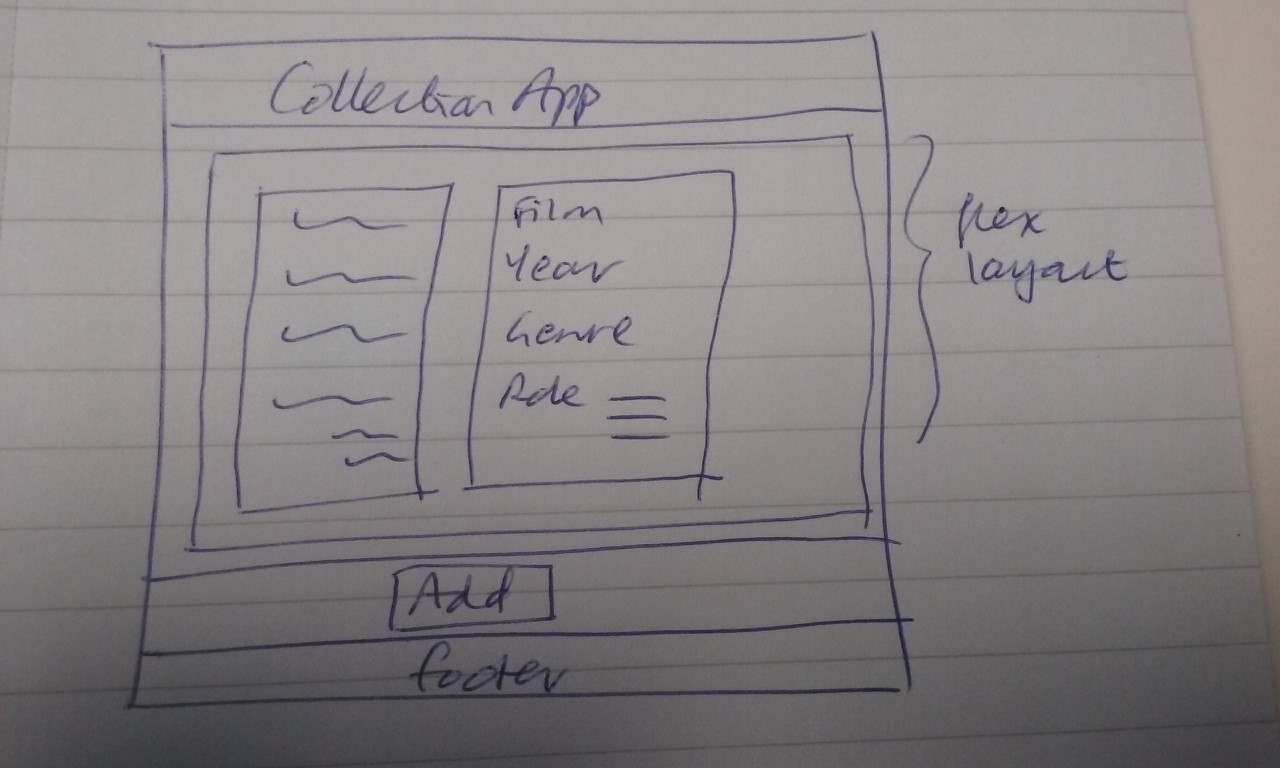 Collection App
Film
Year
Genre
Role
flex
layout
Add
footer